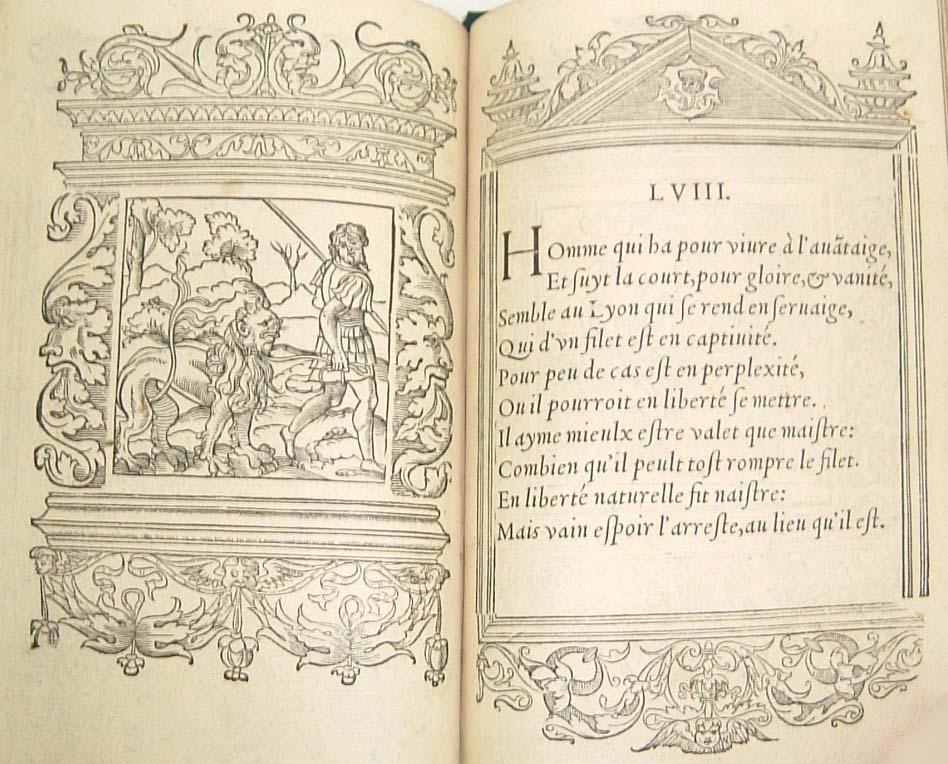 LVIII.
Homme qui ha pour viure à l'auãtaige,
Et ſuyt la court, pour gloire, & vanité,
Semble au Lyon qui ſe rend en ſeruaige,
Qui d'vn filet eſt en captiuité.
Pour peu de cas eſt en perplexité,
Ou il pourroit en liberté ſe mettre.
Il ayme mieulx eſtre valet que maiſtre:
Combien qu'il peult toſt rompre le filet.
En liberté naturelle fit naiſtre:
Mais vain eſpoir l'arreſte, au lieu qu'il eſt.